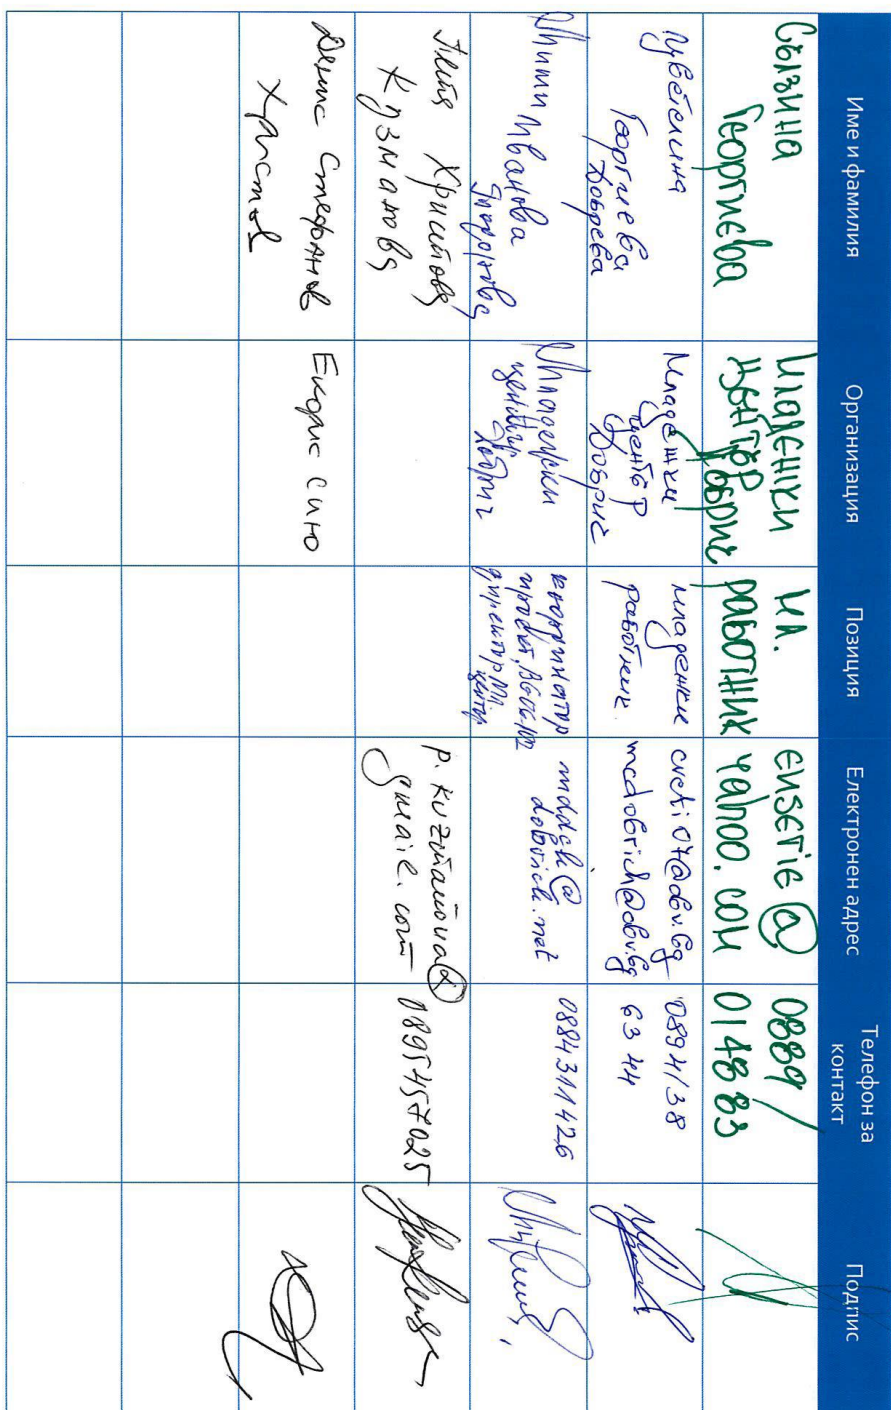 Име и фамилия
Организация
Позиция
Електронен адрес
Телефон за
контакт
Подпис
Сьзина
Георгиева
Младежки
център
Добрич
мл.
работник
ensetie@
yahoo.com
0889/
014883
Цветелина
Георгиева
Добрева
Младежки
център
Добрич
младежки
работник
cveti07@abv.bg
mcdobrich@abv.bg
0894/38
63 44
Мими Иванова
Младежки
център
Добрич
координатор
директор МЦ
център
mddgk@
dobrich.net
0884311426
Петя Христова
Кузманова
p.kuzmanova@
gmail.com
0895457025
Денис Стефанов
Христов
Екорис Сино